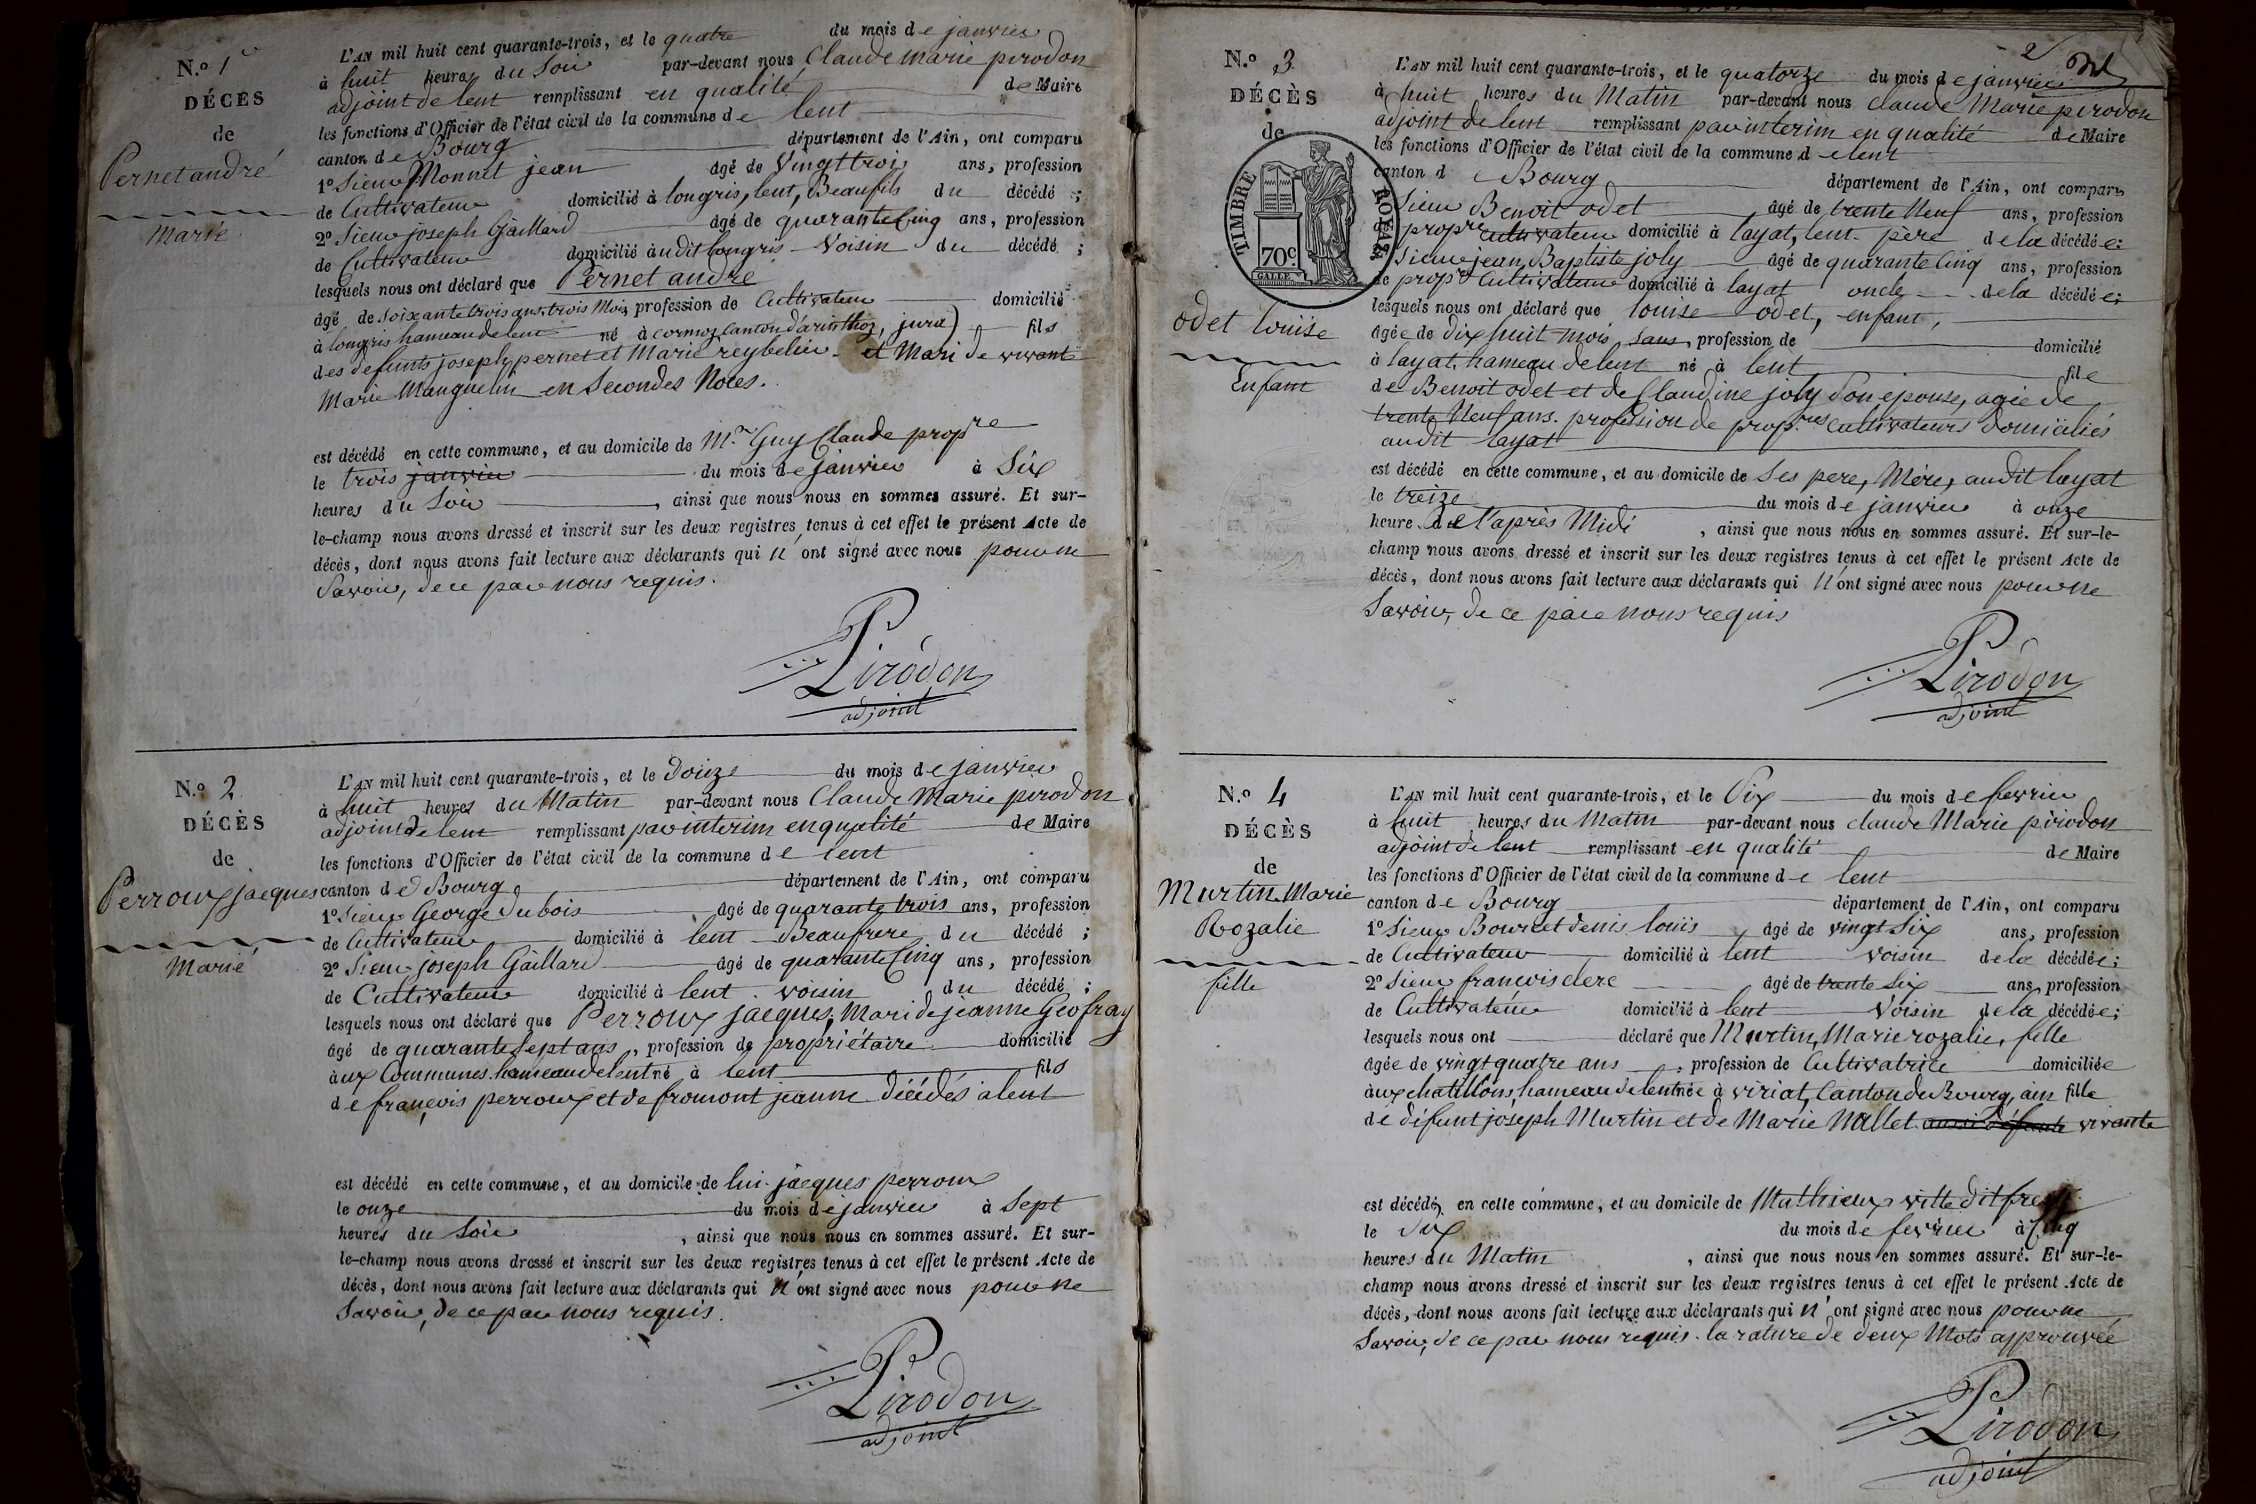 N.o 1
DÉCÈS
de
Pernet andré
Marié
L'AN mil huit cent quarante-trois, et le quatre du mois de janvier
à huit heures du Soir par-devant nous Claude marie pirodon
adjoint de lent remplissant en qualité de Maire
les fonctions d'Officier de l'état civil de la commune de lent
canton de Bourg département de l'Ain, ont comparu
1o Sieur Monnet jean âgé de Vingt trois ans, profession
de Cultivateur domicilié à longris, lent, Beaufils du décédé ;
2o Sieur joseph Gaillard âgé de quarante Cinq ans, profession
de Cultivateur domicilié àudit longris Voisin du décédé ;
lesquels nous ont déclaré que Pernet andré
âgé de soixante trois ans trois Mois, profession de Cultivateur domicilié
à longris hameau de lent né à cornoz Canton d'arinthoz, jura) fils
des défunts joseph pernet et Marie reybelin et Mari de vivante
Marie Manguelin en Secondes Noces.
est décédé en cette commune, et au domicile de Mr Guy Claude propre
le trois janvier du mois de janvier à Six
heures du Soir, ainsi que nous nous en sommes assuré. Et sur-
le-champ nous avons dressé et inscrit sur les deux registres tenus à cet effet le présent Acte de
décès, dont nous avons fait lecture aux déclarants qui n'ont signé avec nous pour ne
Savoir, de ce par nous requis.
Pirodon
adjoint
N.o 2
DÉCÈS
de
Perroux jacques
Marié
L'AN mil huit cent quarante-trois, et le Douze du mois de janvier
à huit heures du Matin par-devant nous Claude Marie pirodon
adjoint de lent remplissant par interim en qualité de Maire
les fonctions d'Officier de l'état civil de la commune de lent
canton de Bourg département de l'Ain, ont comparu
1o Sieur George Dubois âgé de quarante trois ans, profession
de Cultivateur domicilié à lent Beaufrere du décédé ;
2o Sieur joseph Gaillard âgé de quarante Cinq ans, profession
de Cultivateur domicilié à lent voisin du décédé ;
lesquels nous ont déclaré que Perroux jacques, Mari de jeanne Geofray
âgé de quarante sept ans, profession de propriétaire domicilié
àux Communes hameau de lent né à lent fils
de françois perroux et de fromont jeanne Décédés à lent
est décédé en cette commune, et au domicile de lui jacques perroux
le onze du mois de janvier à Sept
heures du Soir, ainsi que nous nous en sommes assuré. Et sur-
le-champ nous avons dressé et inscrit sur les deux registres tenus à cet effet le présent Acte de
décès, dont nous avons fait lecture aux déclarants qui n'ont signé avec nous pour ne
Savoir, de ce par nous requis.
Pirodon
adjoint
2
N.o 3
DÉCÈS
de
TIMBRE ROYAL
70c.
GALLE
odet louise
Enfant
L'AN mil huit cent quarante-trois, et le quatorze du mois de janvier
à huit heures du Matin par-devant nous Claude Marie pirodon
adjoint de lent remplissant par interim en qualité de Maire
les fonctions d'Officier de l'état civil de la commune de lent
canton de Bourg département de l'Ain, ont comparu
Sieur Benoit odet âgé de trente Neuf ans, profession
propre Cultivateur domicilié à layat, lent père de la décédée:
Sieur jean Baptiste joly âgé de quarante Cinq ans, profession
de propre Cultivateur domicilié à layat oncle de la décédée;
lesquels nous ont déclaré que louise odet, enfant,
âgée de dix huit mois, sans, profession de domicilié
à layat, hameau de lent né à lent file
de Benoit odet et de Claudine joly Son épouse, agée de
trente Neuf ans. profession de propres cultivateurs Domiciliés
audit layat
est décédé en cette commune, et au domicile de Ses pere, Mére, audit layat
le treize du mois de janvier à onze
heure de l'après Midi, ainsi que nous nous en sommes assuré. Et sur-le-
champ nous avons dressé et inscrit sur les deux registres tenus à cet effet le présent Acte de
décès, dont nous avons fait lecture aux déclarants qui n'ont signé avec nous pour ne
Savoir, de ce par nous requis
Pirodon
adjoint
N.o 4
DÉCÈS
de
Murtin Marie
Rozalie
fille
L'AN mil huit cent quarante-trois, et le Six du mois de fevrier
à huit heures du Matin par-devant nous Claude Marie pirodon
adjoint de lent remplissant en qualité de Maire
les fonctions d'Officier de l'état civil de la commune de lent
canton de Bourg département de l'Ain, ont comparu
1o Sieur Bourcet denis louis âgé de vingt Six ans, profession
de Cultivateur domicilié à lent voisin de la décédée;
2o Sieur françois clere âgé de trente Six ans, profession
de Cultivateur domicilié à lent Voisin de la décédée;
lesquels nous ont déclaré que Murtin, Marie rozalie, fille
âgée de vingt quatre ans, profession de Cultivatrice domiciliée
àux chatillons, hameau de lent née à viriat, Canton de Bourg, ain fille
de défunt joseph Murtin et de Marie Mallet aussi défunte vivante
est décédée en cette commune, et au domicile de Mathieux ville dit
le Six du mois de fevrier à Cinq
heures du Matin, ainsi que nous nous en sommes assuré. Et sur-le-
champ nous avons dressé et inscrit sur les deux registres tenus à cet effet le présent Acte de
décès, dont nous avons fait lecture aux déclarants qui n'ont signé avec nous pour ne
Savoir, de ce par nous requis. la rature de deux Mots approuvée
Pirodon
adjoint